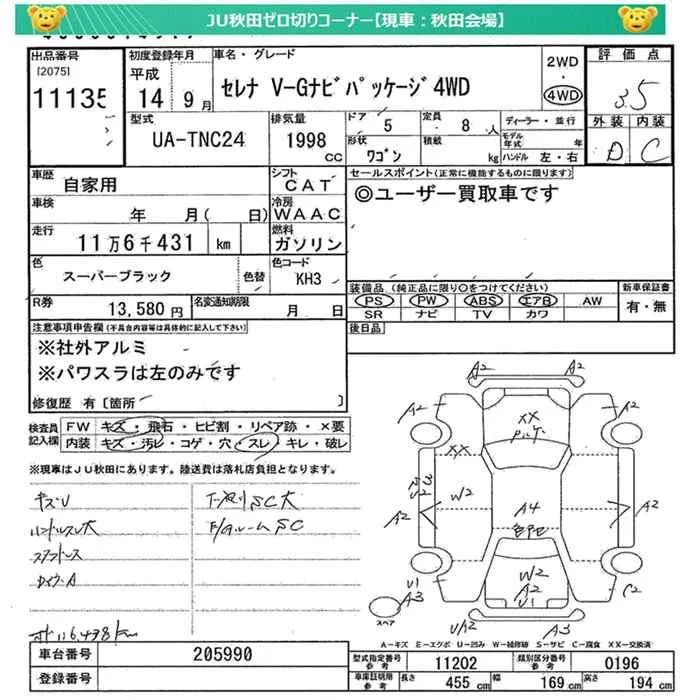 JU秋田ゼロ切りコーナー【現車：秋田会場】
出品番号 [2075] 11135
初度登録年月 平成 14年 9月
車名・グレード セレナ V-Gナビパッケージ4WD
2WD・4WD
評価点 3.5
外装 D 内装 C
型式 UA-TNC24
排気量 1998 cc
ドア 5 定員 8人
形状 ワゴン 積載 kg
ディーラー・並行
モデル年式 年
ハンドル 左・右
車歴 自家用
シフト CAT
車検 年 月( 日)
冷房 WAAC
走行 11万6千431 km
燃料 ガソリン
色 スーパーブラック 色替
色コード KH3
R券 13,580円 名変通知期限 月 日
セールスポイント(正常に機能するものに限ります)
◎ユーザー買取車です
装備品(純正品に限り○をつけてください)
PS PW ABS エアB AW
SR ナビ TV カワ
新車保証書 有・無
後日品
注意事項申告欄(不具合内容等は具体的に記入して下さい)
※社外アルミ
※パワスラは左のみです
修復歴 有〔箇所 〕
検査員記入欄
FW キズ・飛石・ヒビ割・リペア跡・×要
内装 キズ・汚レ・コゲ・穴・スレ・キレ・破レ
※現車はJU秋田にあります。陸送費は落札店負担となります。
キズU
ハンドルスレ大
下廻りSC大
F/Aルーム SC
A2
A2
A2
A2
XX
XX
W2
A4
A2
A2
W2
A2
U1
U1
A3
スペア
C2
U/A2
A3
A-キズ E-エクボ U-凹み W-補修跡 S-サビ C-腐食 XX-交換済
車台番号 205990
登録番号
型式指定番号 参考 11202
類別区分番号 参考 0196
車庫証明用 参考 長さ 455 cm 幅 169 cm 高さ 194 cm